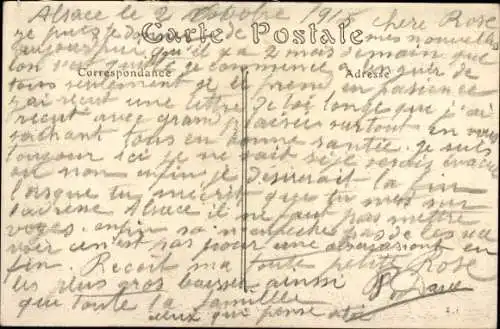 Alsace le 2 Octobre 1915 chere Rose
Carte Postale
je puis de mes nouvelles
aujourdhui qu'il y a 2 mois demain que
lon je commence a languir de
Correspondance
Adresse
tous seulement je le prend en pasience
j'ai recut une lettre de toi longe que j'ai
recut avec grand plaisir surtout en vous
sachant tous en bonne santée je suis
toujour ici je ne sait si je serais évacué
ou non enfin je desirerait la fin
lorsque tu m'ecrit que tu mes sur
Alsace il ne faut pas mettre
enfin sa n'empeche pas de les
voir ce n'est pas pour une en
fin Recoit ma toute petite Rose
les plus gros baiser ainsi
que toute la famille
ceux qui pense a toi